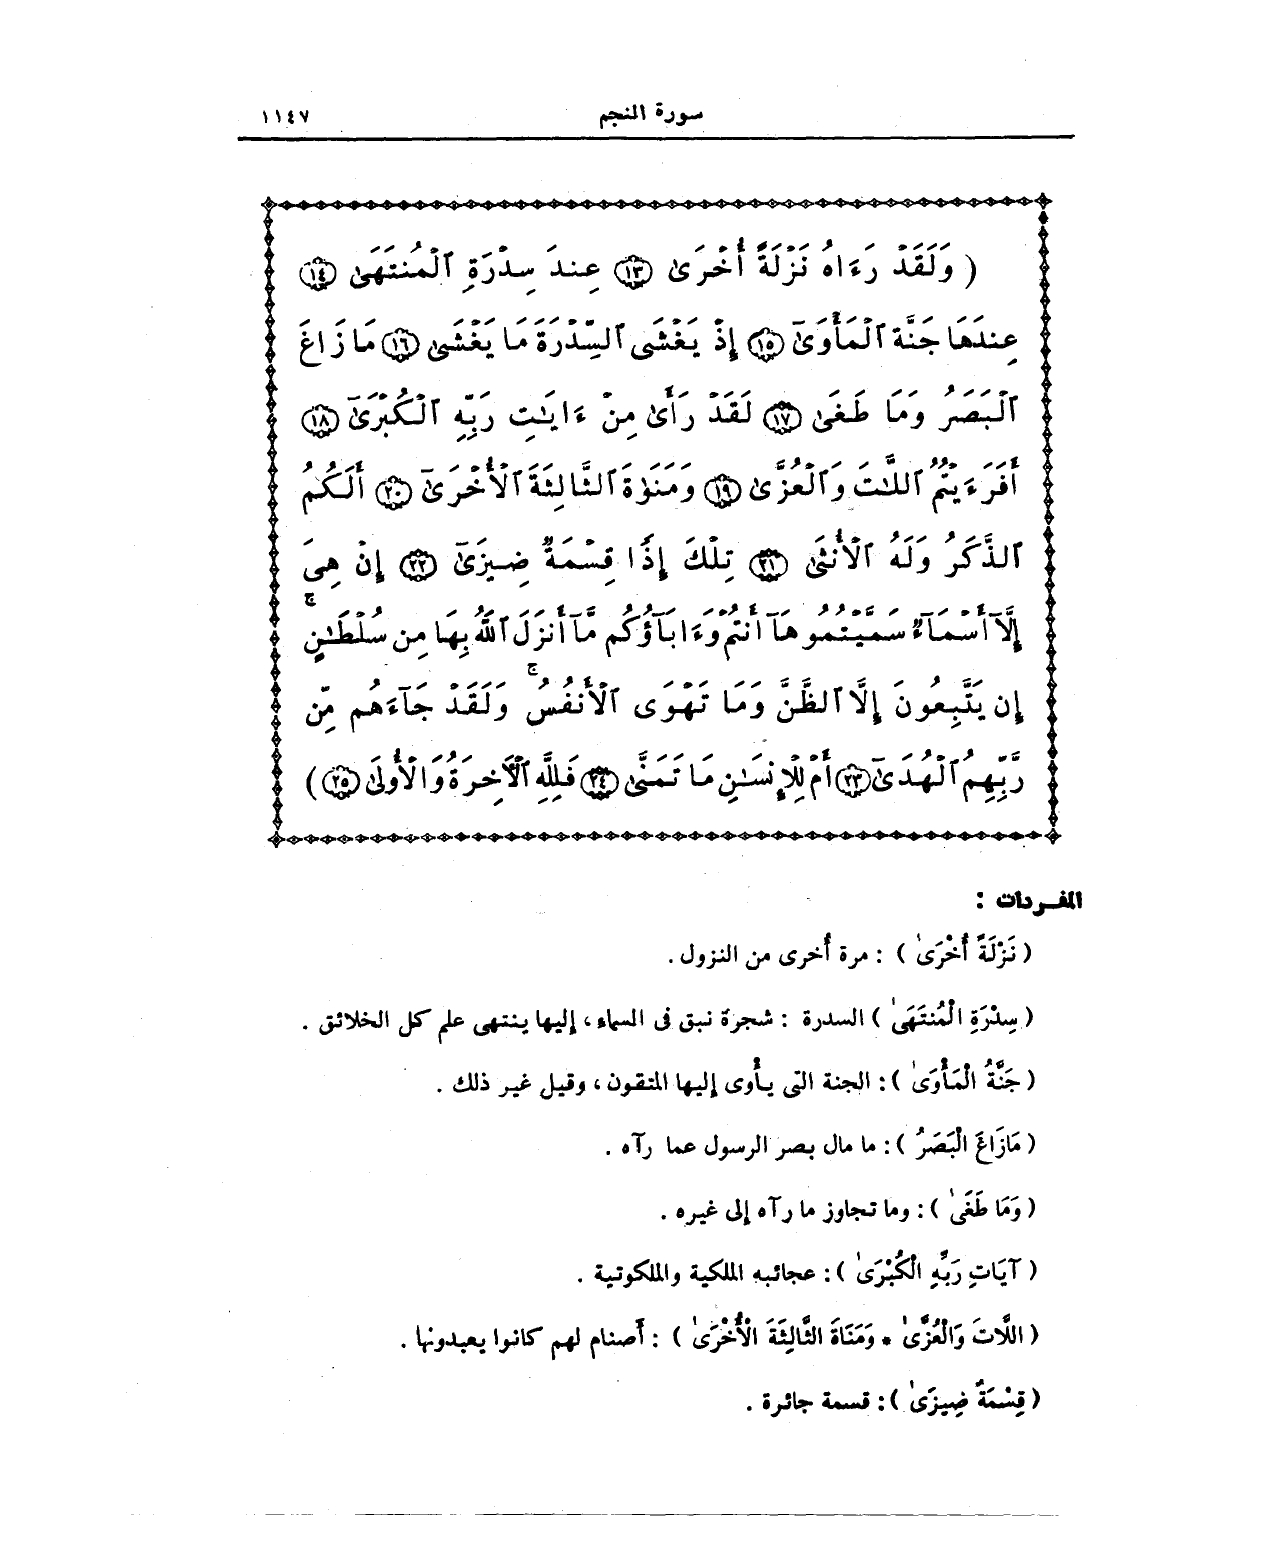 سورة النجم ١١٤٧
( وَلَقَدْ رَءَاهُ نَزْلَةً أُخْرَىٰ ١٣ عِندَ سِدْرَةِ ٱلْمُنتَهَىٰ ١٤
عِندَهَا جَنَّةُ ٱلْمَأْوَىٰٓ ١٥ إِذْ يَغْشَى ٱلسِّدْرَةَ مَا يَغْشَىٰ ١٦ مَا زَاغَ
ٱلْبَصَرُ وَمَا طَغَىٰ ١٧ لَقَدْ رَأَىٰ مِنْ ءَايَٰتِ رَبِّهِ ٱلْكُبْرَىٰٓ ١٨
أَفَرَءَيْتُمُ ٱللَّٰتَ وَٱلْعُزَّىٰ ١٩ وَمَنَوٰةَ ٱلثَّالِثَةَ ٱلْأُخْرَىٰٓ ٢٠ أَلَكُمُ
ٱلذَّكَرُ وَلَهُ ٱلْأُنثَىٰ ٢١ تِلْكَ إِذًا قِسْمَةٌ ضِيزَىٰٓ ٢٢ إِنْ هِىَ
إِلَّآ أَسْمَآءٌ سَمَّيْتُمُوهَآ أَنتُمْ وَءَابَآؤُكُم مَّآ أَنزَلَ ٱللَّهُ بِهَا مِن سُلْطَٰنٍ ۚ
إِن يَتَّبِعُونَ إِلَّا ٱلظَّنَّ وَمَا تَهْوَى ٱلْأَنفُسُ ۚ وَلَقَدْ جَآءَهُم مِّن
رَّبِّهِمُ ٱلْهُدَىٰٓ ٢٣ أَمْ لِلْإِنسَٰنِ مَا تَمَنَّىٰ ٢٤ فَلِلَّهِ ٱلْآخِرَةُ وَٱلْأُولَىٰ ٢٥ )
المفـردات :
( نَزْلَةً أُخْرَىٰ ) : مرة أخرى من النزول .
( سِدْرَةِ الْمُنتَهَىٰ ) السدرة : شجرة نبق فى السماء ، إليها ينتهى علم كل الخلائق .
( جَنَّةُ الْمَأْوَىٰ ) : الجنة التى يأوى إليها المتقون ، وقيل غير ذلك .
( مَازَاغَ الْبَصَرُ ) : ما مال بصر الرسول عما رآه .
( وَمَا طَغَىٰ ) : وما تجاوز ما رآه إلى غيره .
( آيَاتِ رَبِّهِ الْكُبْرَىٰ ) : عجائبه الملكية والملكوتية .
( اللَّاتَ وَالْعُزَّىٰ * وَمَنَاةَ الثَّالِثَةَ الْأُخْرَىٰ ) : أصنام لهم كانوا يعبدونها .
( قِسْمَةٌ ضِيزَىٰ ) : قسمة جائرة .